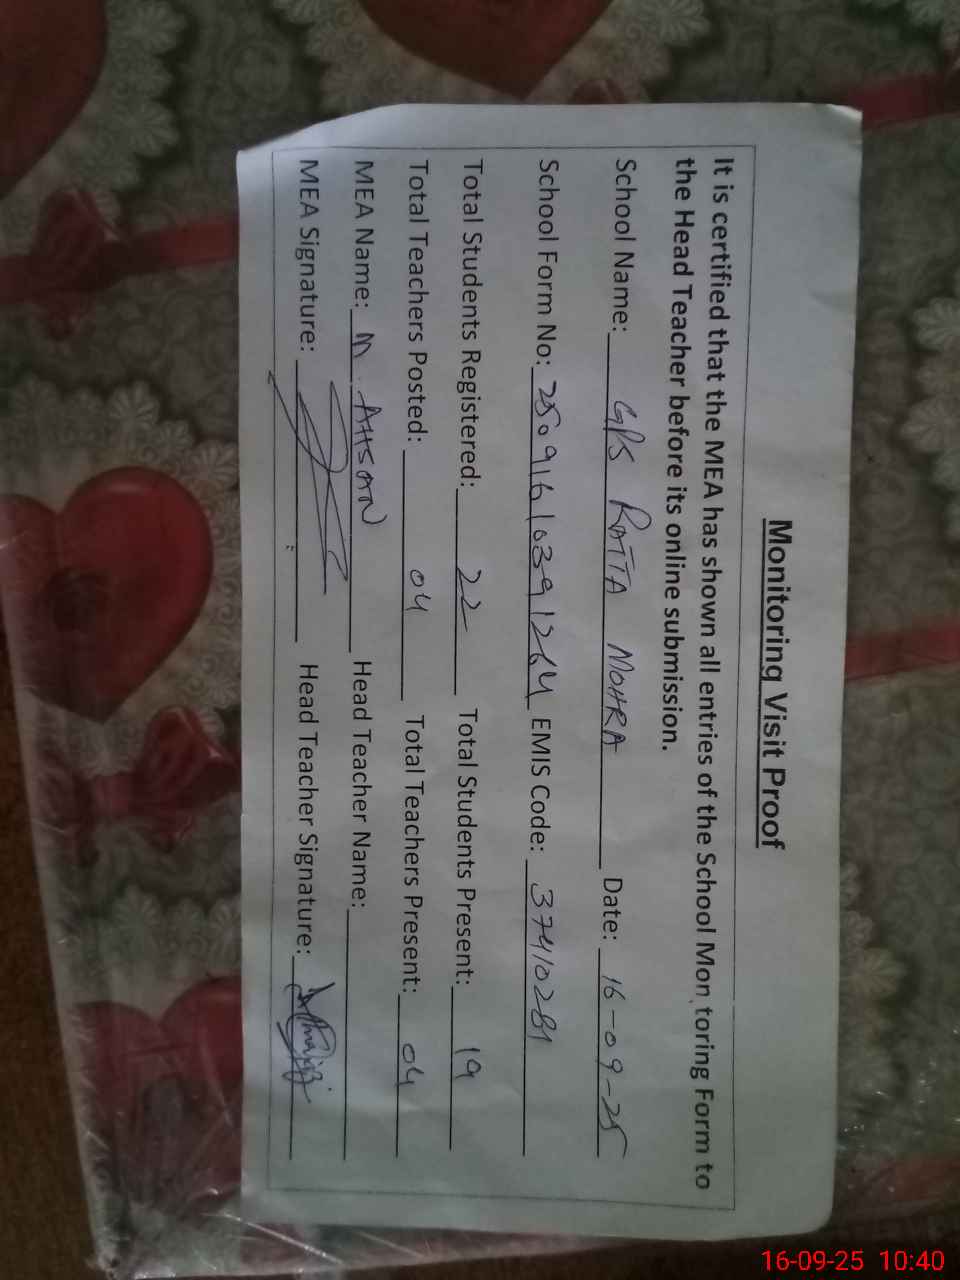 Monitoring Visit Proof
It is certified that the MEA has shown all entries of the School Mon toring Form to
the Head Teacher before its online submission.
School Name: GPS RATTA MOHRA Date: 16-09-25
School Form No: 25091610391264 EMIS Code: 37410281
Total Students Registered: 22 Total Students Present: 19
Total Teachers Posted: 04 Total Teachers Present: 04
MEA Name: M. AHSAN Head Teacher Name:
MEA Signature: Head Teacher Signature:
16-09-25 10:40